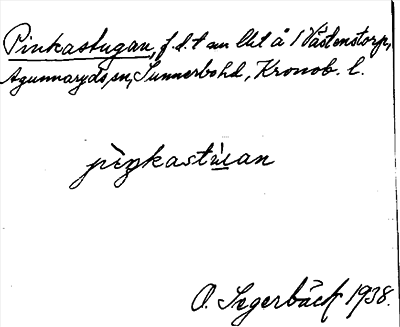 Pinkastugan, f.d. t en lht å 1 Västenstorp,
Agunnaryds sn, Sunnerbo hd, Kronob. l.
pìŋkastùan
O. Segerbäck 1938.